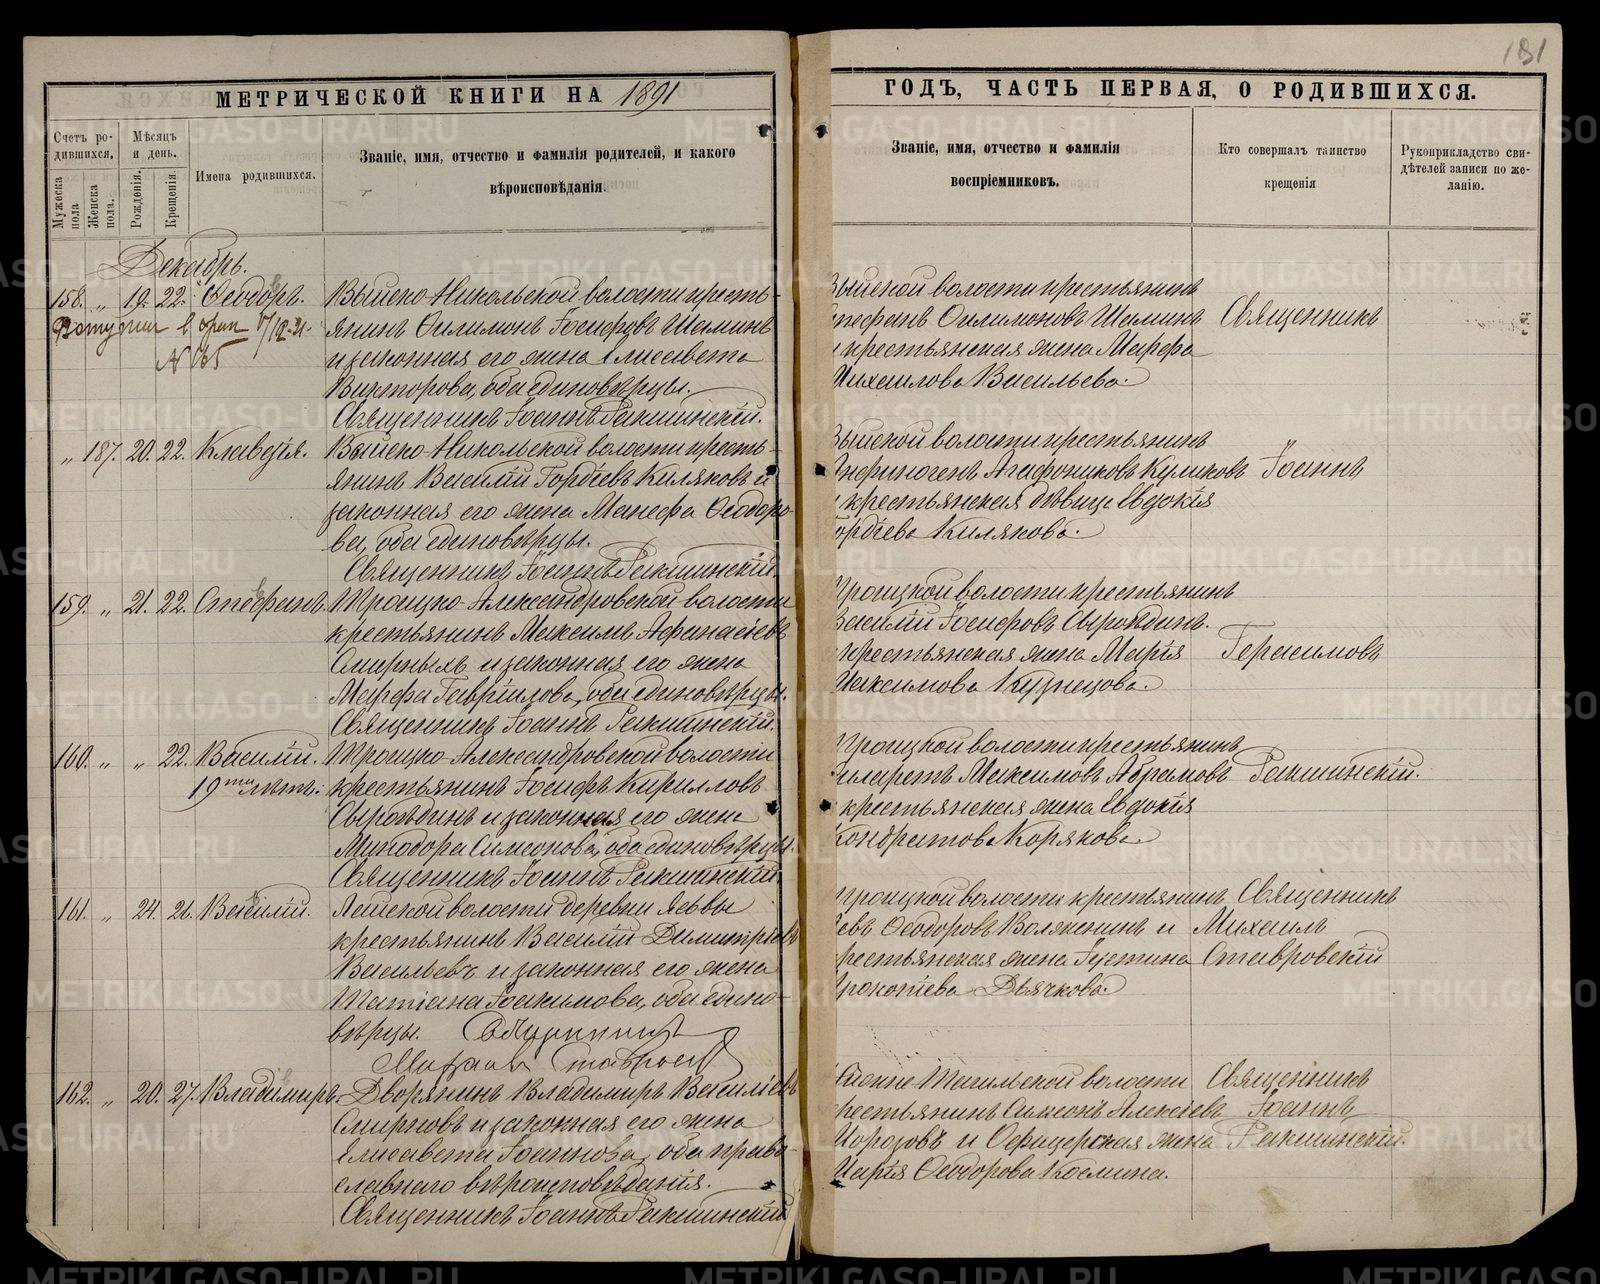 181
МЕТРИЧЕСКОЙ КНИГИ НА 1891
ГОДЪ, ЧАСТЬ ПЕРВАЯ, О РОДИВШИХСЯ.
Счетъ ро-
дившихся.
Мужеска
пола
Женска
пола.
Мѣсяцъ
и день.
Рожденія.
Крещенія
Имена родившихся.
Званіе, имя, отчество и фамилія родителей, и какого
вѣроисповѣданія.
Званіе, имя, отчество и фамилія
воспріемниковъ.
Кто совершалъ таинство
крещенія
Рукоприкладство сви-
дѣтелей записи по же-
ланію.
Декабрь.
158. „ 19. 22. Ѳеодоръ.
№ 165
Выйско-Никольской волости кресть-
янинъ Филимонъ Іосифовъ Шаминъ
и законная его жена Елисавета
Викторова, оба единовѣрцы.
Священникъ Іоаннъ Ракшинскій.
Выйской волости крестьянинъ
Стефанъ Филимоновъ Шаминъ
и крестьянская жена Марфа
Михаилова Васильева.
Священникъ
„ 187. 20. 22. Клавдія.
Выйско-Никольской волости кресть-
янинъ Василій Гордіевъ Киляковъ и
законная его жена Манефа Ѳеодоро-
ва, оба единовѣрцы.
Священникъ Іоаннъ Ракшинскій.
Выйской волости крестьянинъ
Анфиногенъ Агафониковъ Куликовъ
и крестьянская дѣвица Евдокія
Гордіева Килякова.
Іоаннъ
159. „ 21. 22. Стефанъ.
Троицко-Александровской волости
крестьянинъ Максимъ Афанасіевъ
Смирныхъ и законная его жена
Марфа Гавріилова, оба единовѣрцы.
Священникъ Іоаннъ Ракшинскій.
Троицкой волости крестьянинъ
Василій Іосифовъ Сыроѣдинъ.
и крестьянская жена Марія
Максимова Кузнецова.
Герасимовъ
160. „ „ 22. Василій.
19ти лѣтъ.
Троицко-Александровской волости
крестьянинъ Іосифъ Кирилловъ
Сыроѣдинъ и законная его жена
Минодора Симеонова, оба единовѣрцы.
Священникъ Іоаннъ Ракшинскій.
Троицкой волости крестьянинъ
Филаретъ Максимовъ Абрамовъ
и крестьянская жена Евдокія
Кондратова Корякова.
Ракшинскій.
161. „ 24. 26. Василій.
Лайской волости деревни Ясьвы
крестьянинъ Василій Димитріевъ
Васильевъ и законная его жена
Татіана Іоакимова, оба едино-
вѣрцы. Священникъ
Михаилъ Ставровскій
Троицкой волости крестьянинъ
Левъ Ѳеодоровъ Воложенинъ и
крестьянская жена Іустина
Прокопіева Дьячкова.
Священникъ
Михаилъ
Ставровскій
162. „ 20. 27. Владиміръ.
Дворянинъ Владиміръ Василіевъ
Смирновъ и законная его жена
Елисавета Іоаннова, оба право-
славнаго вѣроисповѣданія.
Священникъ Іоаннъ Ракшинскій
Нижне-Тагильской волости
крестьянинъ Симеонъ Алексіевъ
Морозовъ и Офицерская жена
Марія Ѳеодорова Космина.
Священникъ
Іоаннъ
Ракшинскій.
METRIKI.GASO-URAL.RU